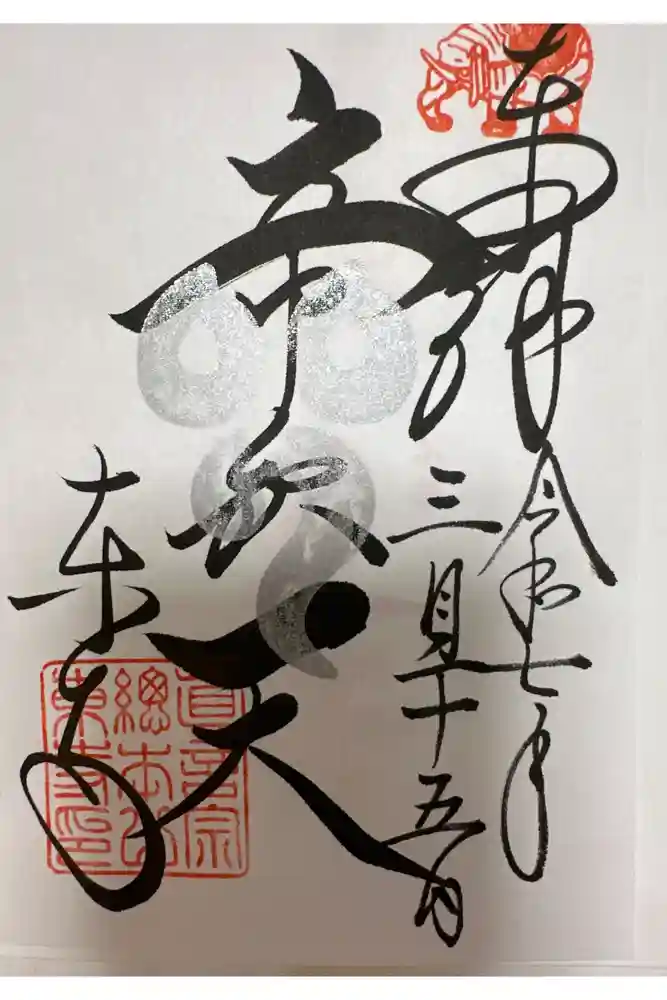 奉拝
令和七年
三月十五日
帝釈天
東寺
真言宗
総本山
東寺印